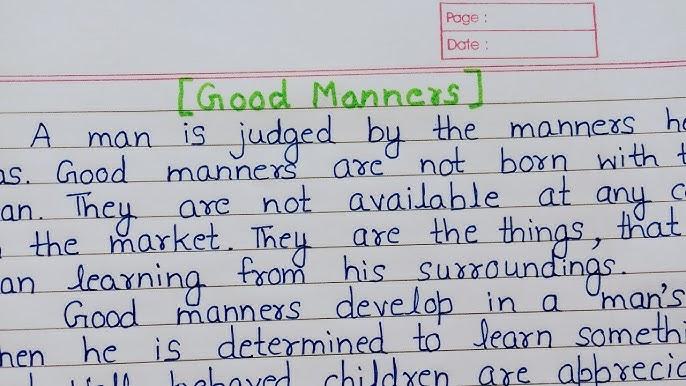 Page :
Date :
[Good Manners]
A man is judged by the manners h
as. Good manners are not born with t
an. They are not available at any c
the market. They are the things, that
an learning from his surroundings.
Good manners develop in a man's
hen he is determined to learn somethi
behaved children are abbrecia